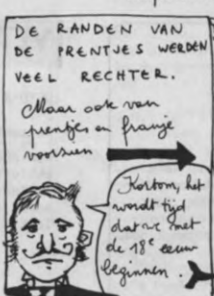 DE RANDEN VAN
DE PRENTJES WERDEN
VEEL RECHTER.
Maar ook van
prentjes en franje
voorzien
Kortom, het
wordt tijd
dat we met
de 18e eeuw
beginnen.